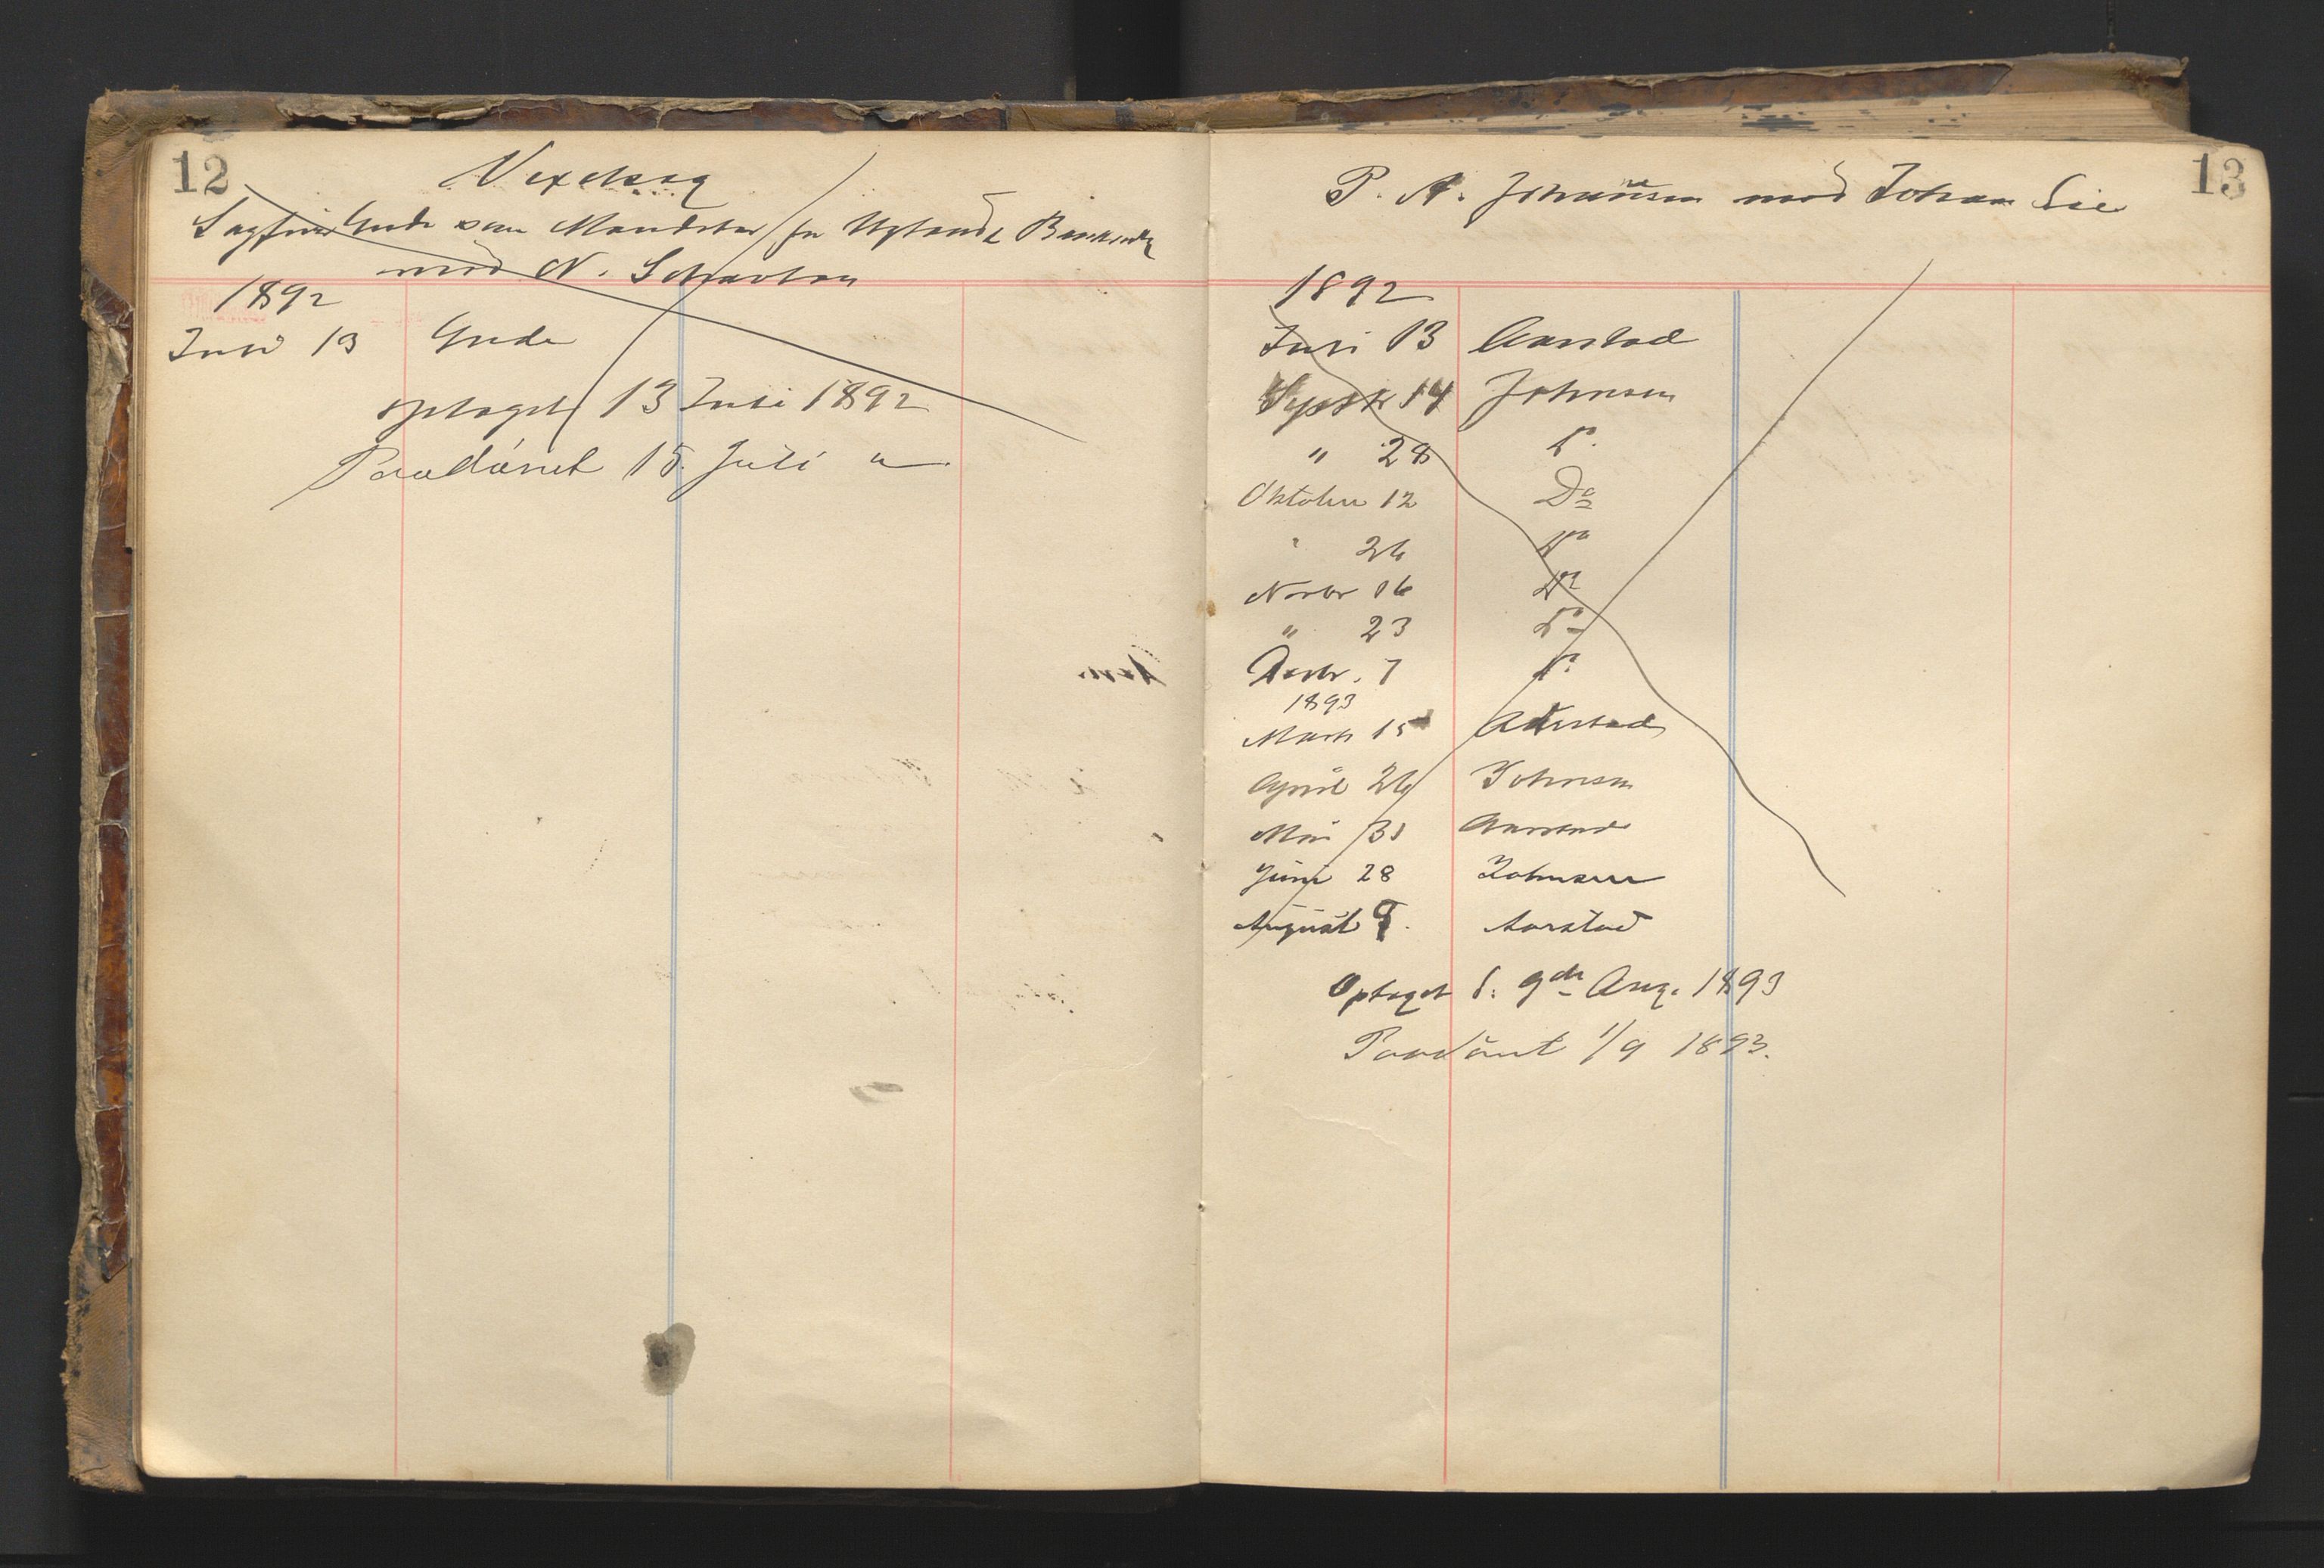 12
Vexelsag
Sagfører Gude som Mandatar for
mod N.
1892
Juli 13 Gude
optaget 13 Juli 1892
Paadömt 15. Juli "
13
P. A. Johnsen mod Johan Lie
1892
Juli 13 Aarstad
Septbr 14 Johnsen
" 28 Do
Oktober 12 Do
" 26 Do
Novbr 16 Do
" 23 Do
Decbr. 7 Do
1893
Marts 15 Aarstad
April 26 Johnsen
Mai 31 Aarstad
Juni 28 Johnsen
August 9. Aarstad
Optaget d. 9de Aug. 1893
Paadömt 1/9 1893.